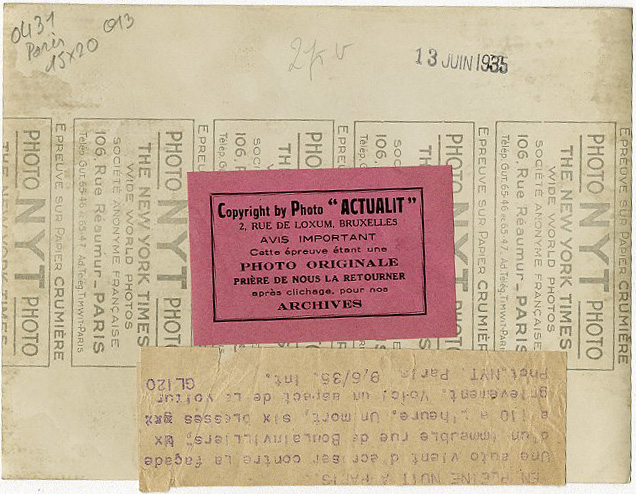 0431 013
Paris
15x20
13 JUIN 1935
PHOTO NYT PHOTO
THE NEW YORK TIMES
WIDE WORLD PHOTOS
SOCIÉTÉ ANONYME FRANÇAISE
106, Rue Réaumur-PARIS
Télép. Gut. 65-46 et 65-47. Ad. Télég. TIMWIT-PARIS
EPREUVE SUR PAPIER CRUMIÈRE
Copyright by Photo "ACTUALIT"
2, RUE DE LOXUM, BRUXELLES
AVIS IMPORTANT
Cette épreuve étant une
PHOTO ORIGINALE
PRIÈRE DE NOUS LA RETOURNER
après clichage, pour nos
ARCHIVES
EN PLEINE NUIT A PARIS
Une auto vient d'écraser contre la façade
d'un immeuble rue de Boulainvilliers,
à 110 à l'heure. Un mort, six blessés
grièvement. Voici un aspect de la voitur
Phot. NYT. Paris 9.6/35. Int.
GL120